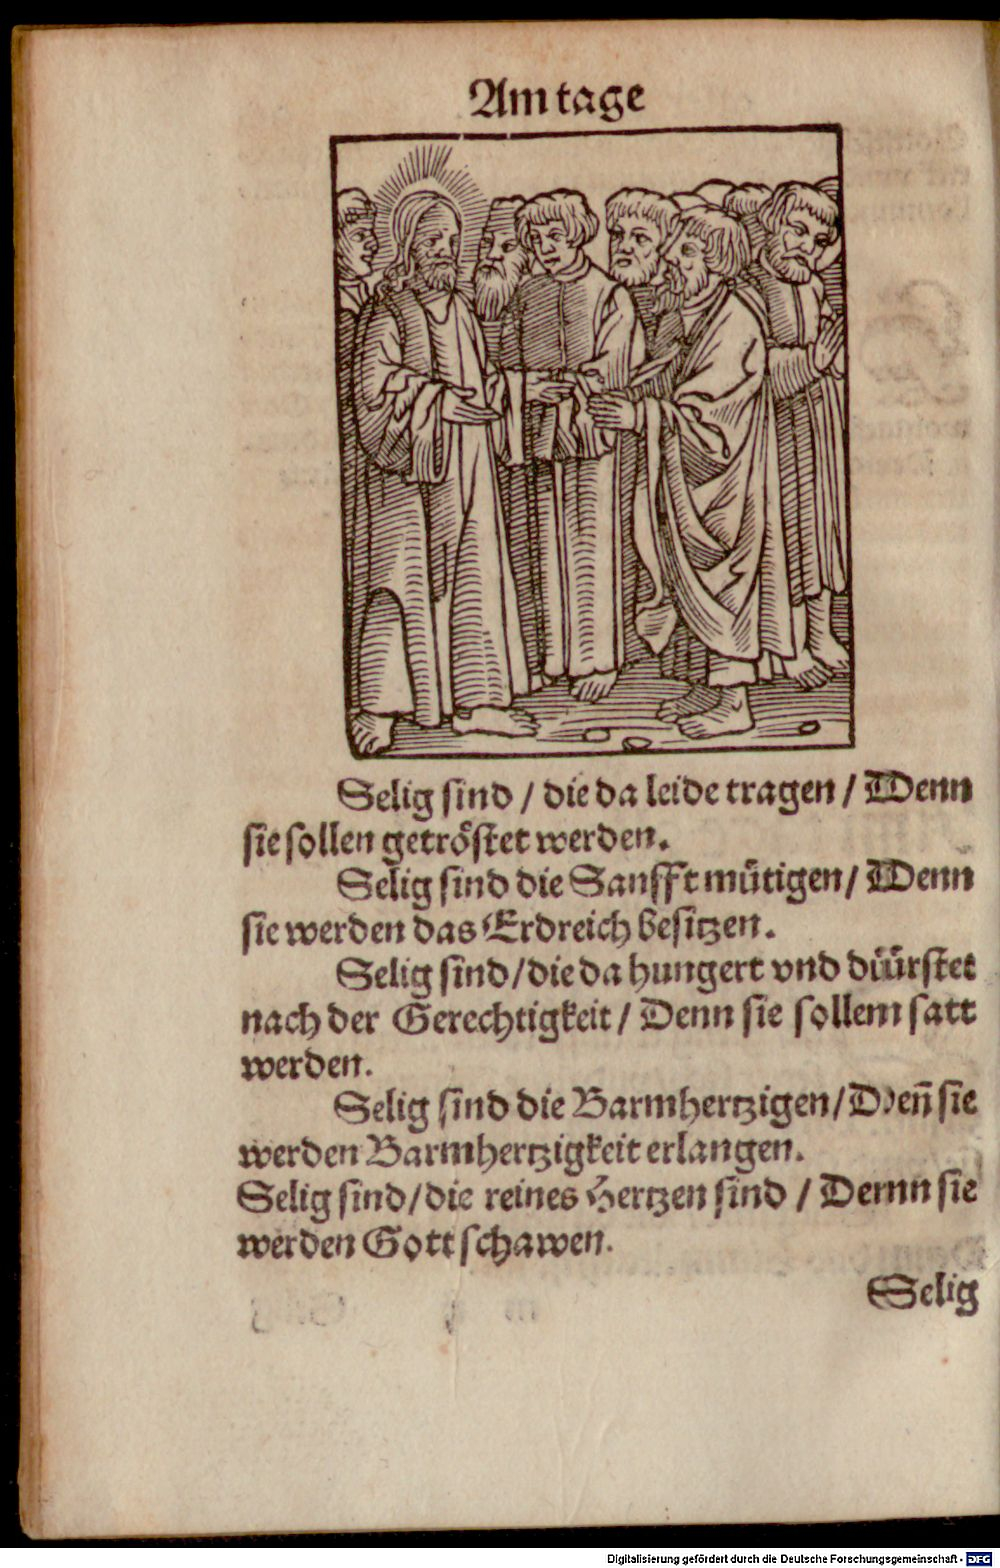 Am tage
Selig sind / die da leide tragen / Denn
sie sollen getröstet werden.
Selig sind die Sanfftmütigen / Denn
sie werden das Erdreich besitzen.
Selig sind / die da hungert vnd düürstet
nach der Gerechtigkeit / Denn sie sollem satt
werden.
Selig sind die Barmhertzigen / Deñ sie
werden Barmhertzigkeit erlangen.
Selig sind / die reines Hertzen sind / Demn sie
werden Gott schawen.
Selig
Digitalisierung gefördert durch die Deutsche Forschungsgemeinschaft - DFG